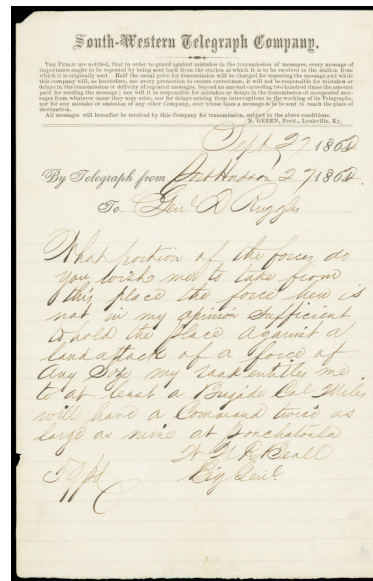 South-Western Telegraph Company.
THE PUBLIC are notified, that in order to guard against mistakes in the transmission of messages, every message of
importance ought to be repeated by being sent back from the station at which it is to be received to the station from
which it is originally sent. Half the usual price for transmission will be charged for repeating the message, and while
this company will, as heretofore, use every precaution to ensure correctness, it will not be responsible for mistakes or
delays in the transmission or delivery of repeated messages, beyond an amount exceeding two hundred times the amount
paid for sending the message; nor will it be responsible for mistakes or delays in the transmission of unrepeated mes-
sages from whatever cause they may arise, nor for delays arising from interruptions in the working of its Telegraphs,
nor for any mistake or omission of any other Company, over whose lines a message is to be sent to reach the place of
destination.
All messages will hereafter be received by this Company for transmission, subject to the above conditions.
N. GREEN, Prest., Louisville, Ky.
Sept 27 186
By Telegraph from Port Hudson 27 186
To Genl D Ruggles
What portion of the forces do
you wish me to take from
this place the force here is
not in my opinion sufficient
to hold the place against a
land attack of a force of
any size my rank entitles me
to at least a Brigade Col Miles
will have a Command twice as
large as mine at Ponchatoula
W N R Beall
Brig Genl